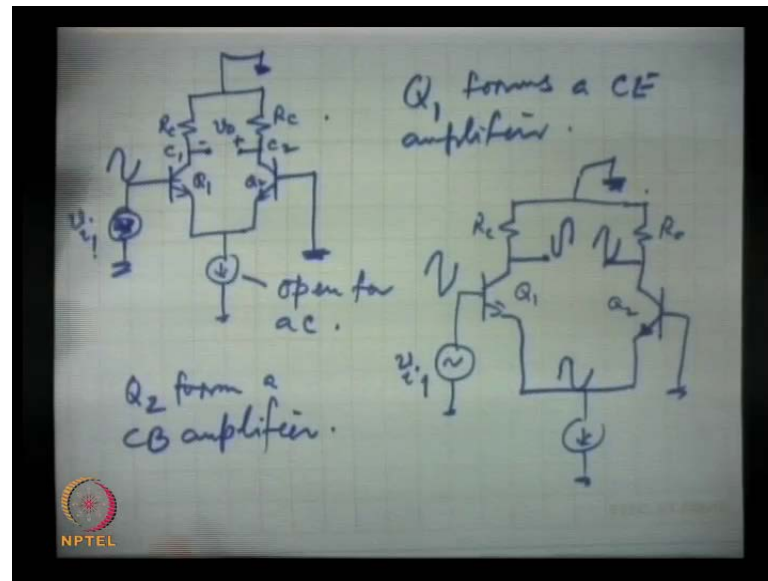 Rc
Rc
v0
C1 - + C2
Q1
Q2
vi1
open for
ac.
Q1 forms a CE
amplifier.
Q2 form a
CB amplifier.
Rc
Q1
Q2
vi1
NPTEL